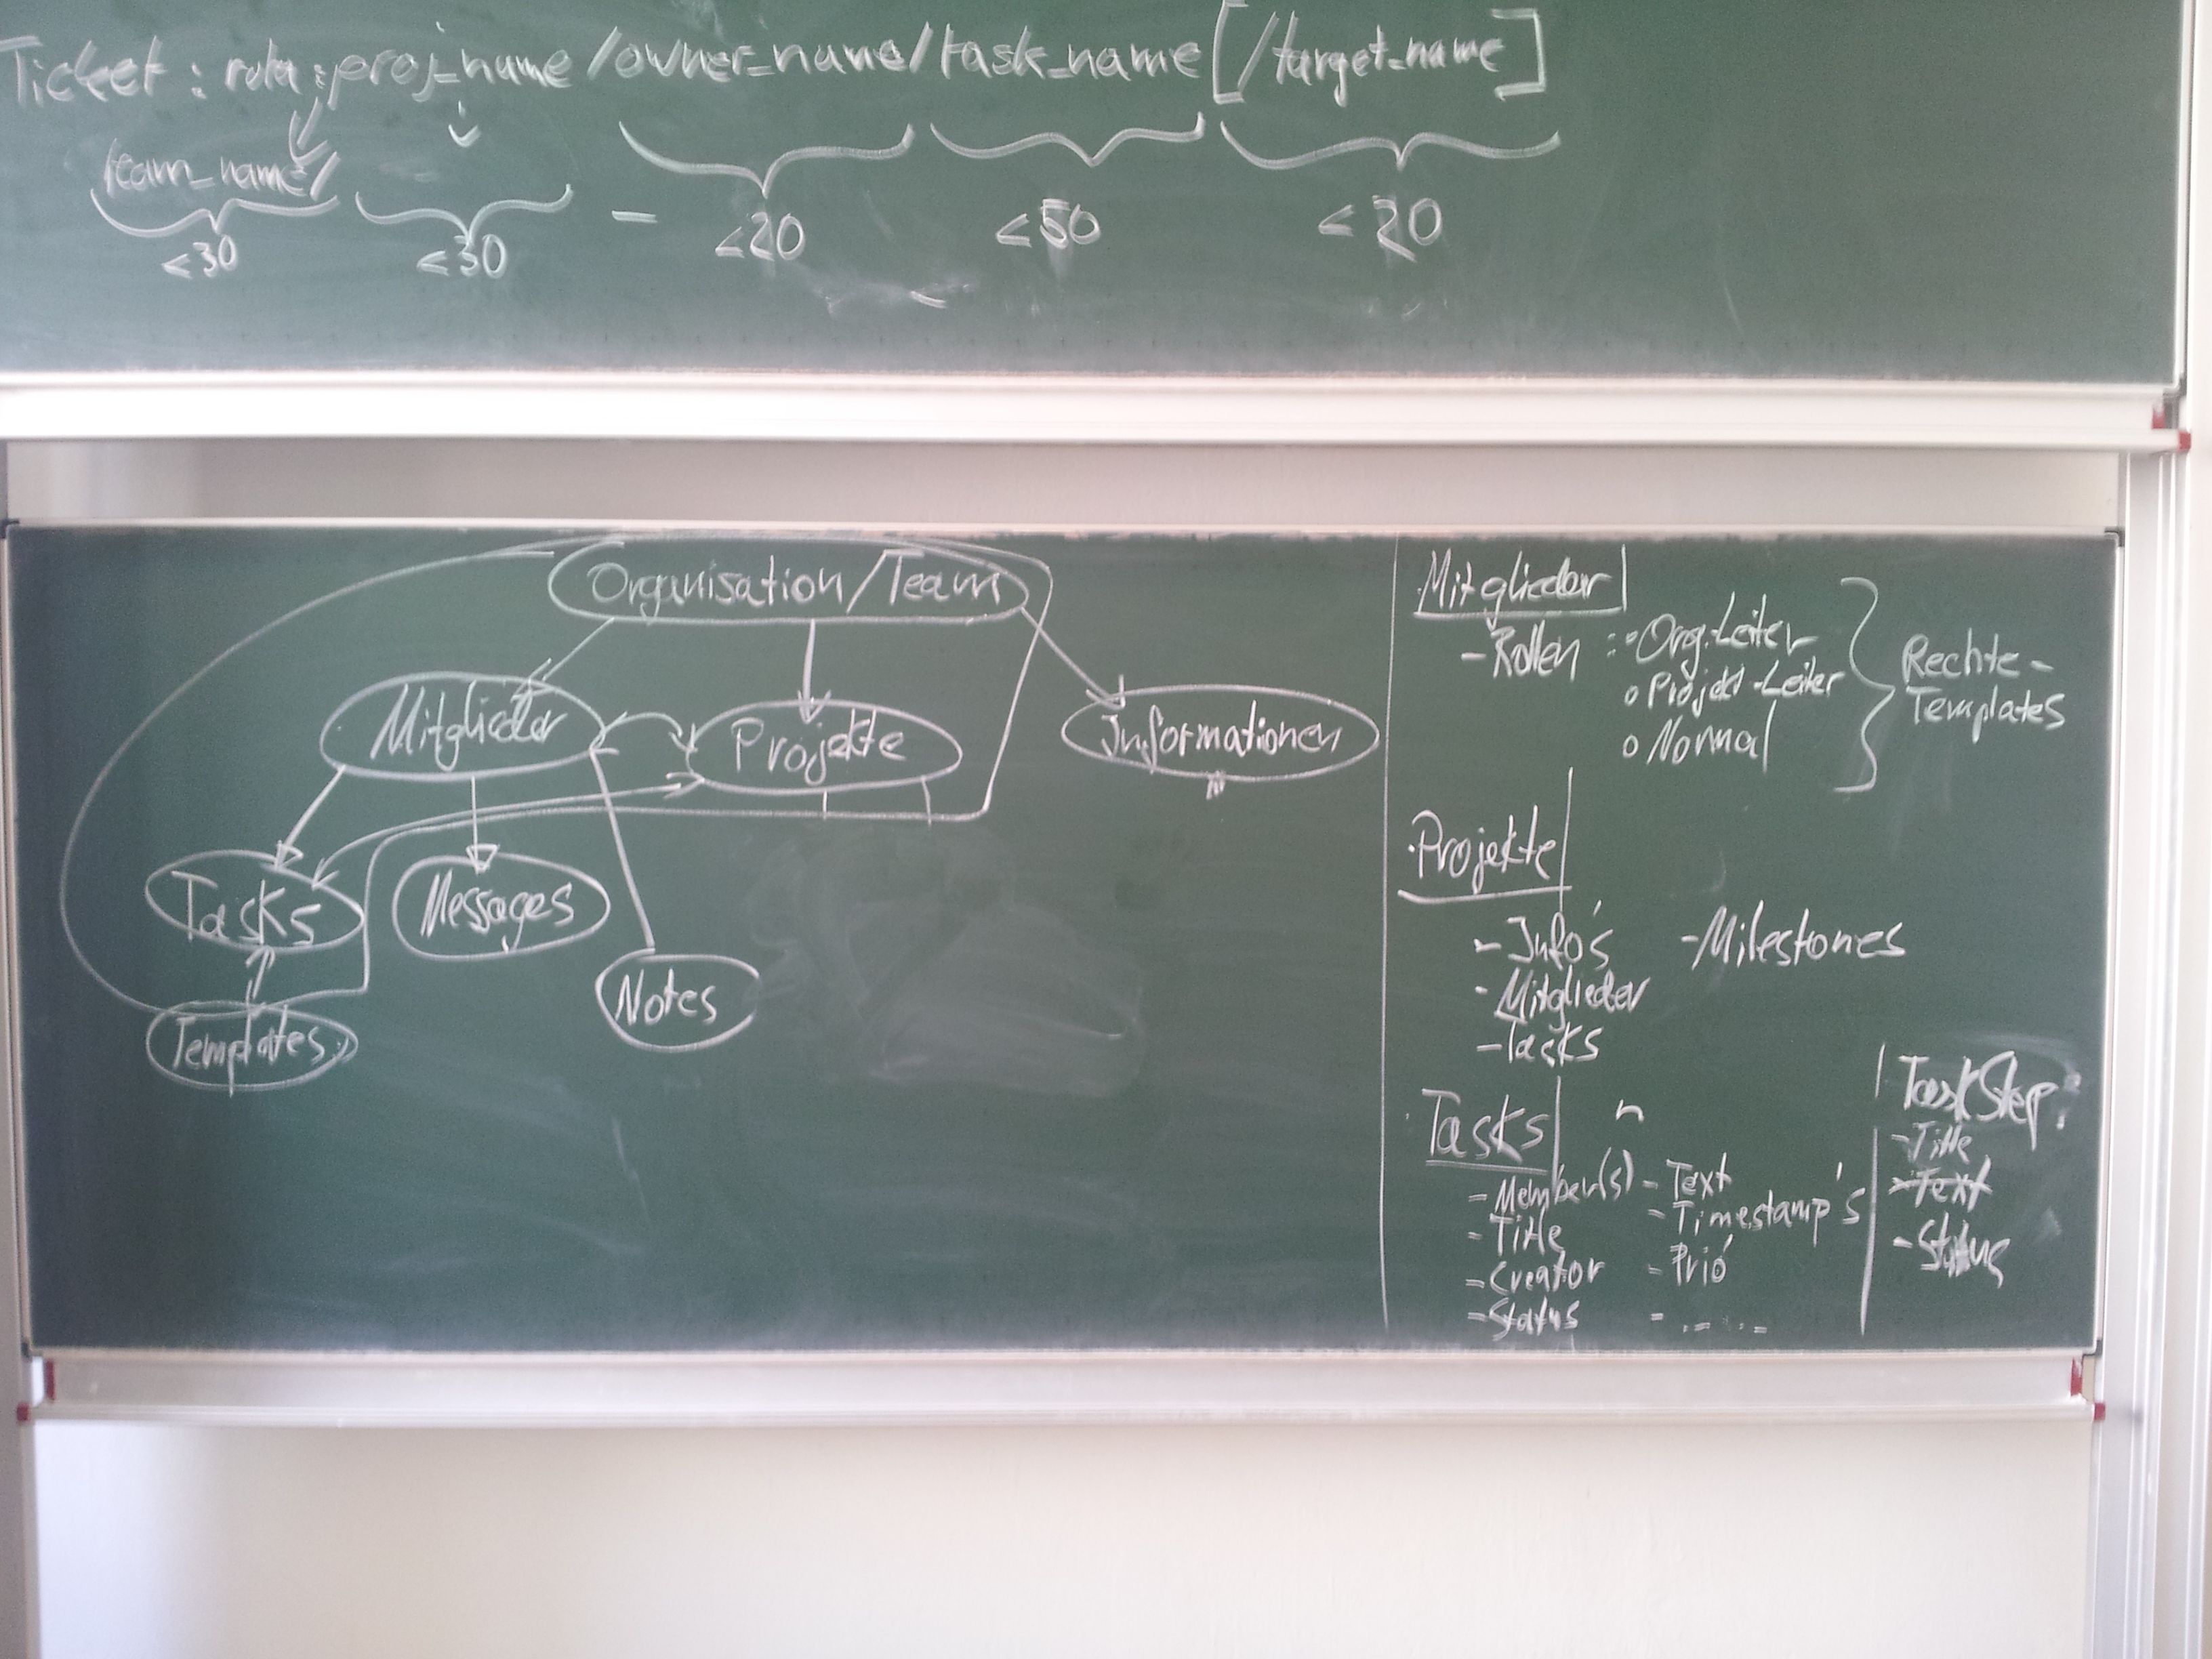 Ticket : rota:proj_name/owner_name/task_name[/target_name]
team_name/
<30 <30 - <20 <50 <20
Organisation/Team
Mitglieder Projekte Informationen
Tasks Messages
Notes
Templates
Mitglieder
- Rollen : o Org.-Leiter
o Projekt-Leiter
o Normal
Rechte-
Templates
Projekte
- Info's - Milestones
- Mitglieder
- Tasks
Tasks
- Member(s) - Text
- Title - Timestamp's
- Creator - Prio
- Status - .....
TaskStep
- Title
- Text
- Status